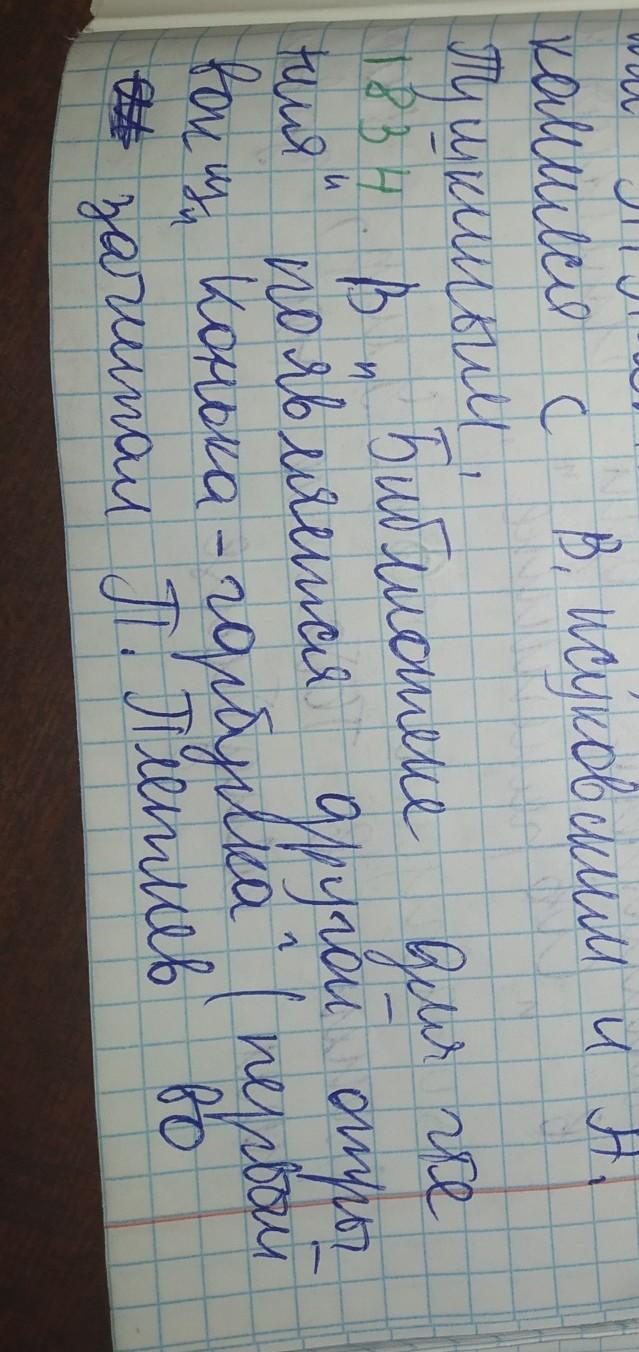 комится с В, жуковским и А.
Пушкиным,
1834 В "Библиотеке для чте
ния" появляется другой отры-
вок из "Конька-горбунка" (первый
зачитал П. Плетнев во